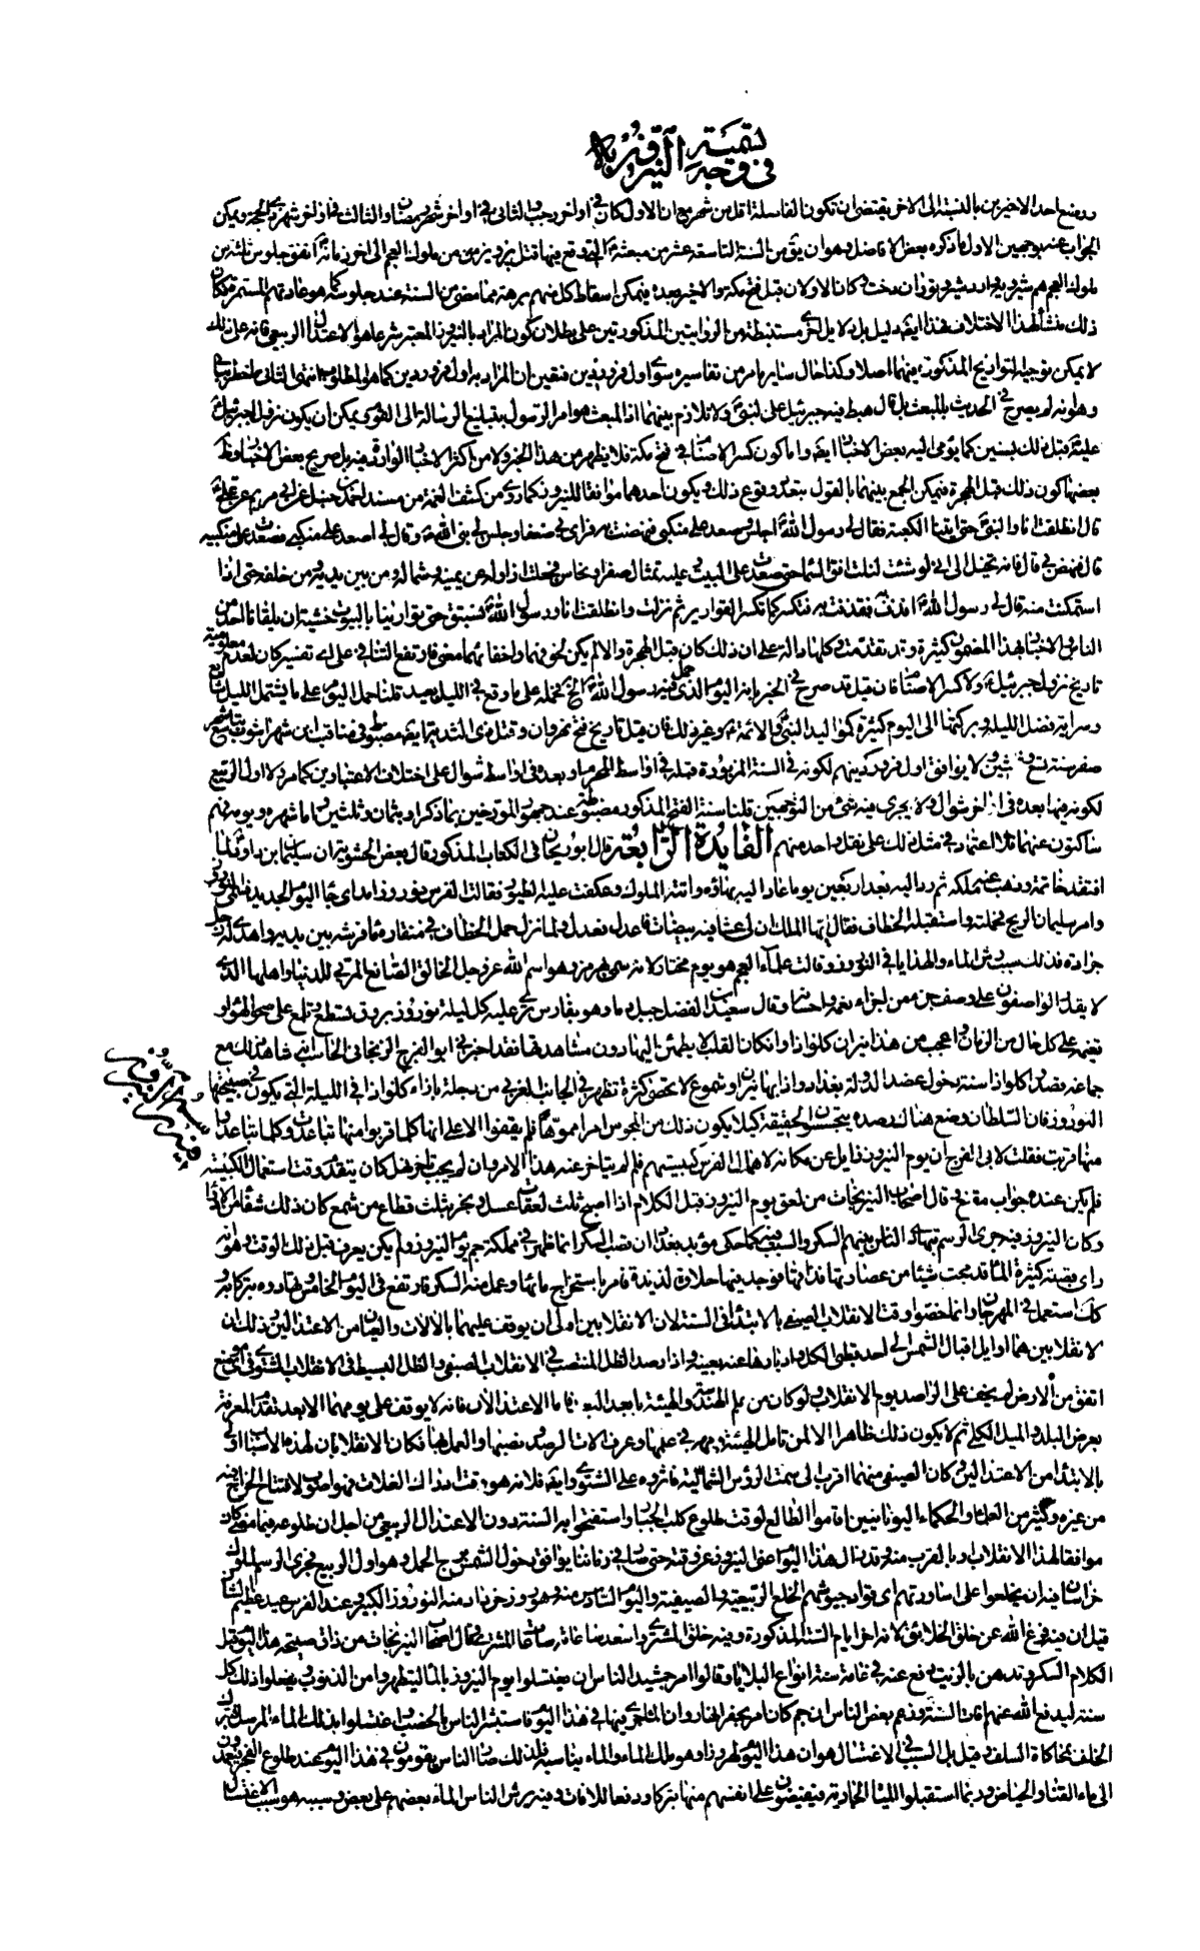 في وجه تسمية النيروز
ووضع احد الاخيرين بالنسبة الى الاخر يقتضى ان تكون الفاصلة اقل من شهر مع ان الاول كان في اواخر رجب والثاني في اواخر شهر رمضان والثالث في اواخر شهر ذي الحجة ويمكن
الجواب عنه بوجهين الاول ما ذكره بعض الافاضل وهو ان يق من السنة التاسعة عشر من مبعثه التي وقع فيها قتل پرويز من ملوك العجم الى اخر زمانه اتفق جلوس ثلثة من
ملوك العجم هم شيرويه واردشير وبوران دخت وكان الاولان قبل فتح مكة والاخير بعده فيمكن اسقاط كل منهم برهة مما مضى من السنة عند جلوسه كما هو عادتهم المستمرة فكان
ذلك منشأ لهذا الاختلاف فهذا ايضا دليل بل دلايل اخرى مستنبطة من الروايتين المذكورتين على بطلان كون المراد بالنيروز المعتبر شرعا هو الاعتدال الربيعي فانه على ذلك
لا يمكن توجيه التواريخ المذكورة فيهما اصلا وكذا حال ساير ما مر من تفاسيره سوى اول فروردين فتعين ان المراد به اول فروردين كما هو المطلوب انتهى الثاني ما خطر ببالي
وهو انه لم يصرح في الحديث بالمبعث بل قال هبط فيه جبرئيل على النبي ولا تلازم بينهما اذ المبعث هو امر الرسول بتبليغ الرسالة الى القوم ويمكن ان يكون نزول جبرئيل
عليه قبل ذلك بسنين كما يومى اليه بعض الاخبار ايضا واما كون كسر الاصنام في فتح مكة فلا يظهر من هذا الخبر ولا من اكثر الاخبار الواردة فيه بل صريح بعض الاخبار وظ
بعضها كون ذلك قبل الهجرة فيمكن الجمع بينهما بالقول بتعدد وقوع ذلك ويكون احدهما موافقا للنيروز كما روى من كشف الغمة من مسند احمد بن حنبل عن ابي مريم عن علي
قال انطلقت انا والنبي حتى اتينا الكعبة فقال لي رسول الله اجلس وصعد على منكبي فنهضت به فراى بي ضعفا وجلس لي نبي الله وقال لي اصعد على منكبي فصعدت على منكبيه
قال فنهض بي قال فانه تخيل الى اني لو شئت لنلت افق السماء حتى صعدت على البيت وعليه تمثال صفر او نحاس فجعلت ازاوله عن يمينه وشماله ومن بين يديه ومن خلفه حتى اذا
استمكنت منه قال لي رسول الله اقذف به فقذفت به فتكسر كما تكسر القوارير ثم نزلت وانطلقت انا ورسول الله نستبق حتى توارينا بالبيوت خشية ان يلقانا احد من
الناس والاخبار بهذا المضمون كثيرة وقد تقدمت وكلها دالة على ان ذلك كان قبل الهجرة والا لم يكن لخوفهما واخفائهما معنى فارتفع التنافي على اي تفسير كان لعدم معلومية
تاريخ نزول جبرئيل ولا كسر الاصنام فان قيل قد صرح في الخبر بانه اليوم الذي حمل فيه رسول الله الخ نحمله على ما وقع في الليل بعيد قلنا حمل اليوم على ما يشتمل الليل شايع
وسراية فضل الليلة وبركتها الى اليوم كثيرة كمواليد النبي والائمة وغير ذلك فان قيل تاريخ فتح نهروان وقتل ذي الثدية ايضا مضبوط في مناقب ابن شهراشوب لتاسع شهر
صفر سنة تسع وثلثين ولا يوافق اول فروردينهم لكونه في السنة المزبورة قبله في اواسط المحرم او بعده في اواسط شوال على اختلاف الاعتبارين كما مر ولا اول الربيع
لكونه فيها بعده في اواخر شوال ولا يجرى فيه شئ من التوجيهين قلنا سنة الفتح المذكور مضبوطة عند جمهور المورخين بما ذكر او بثمان وثلثين واما شهره ويومه فهم
ساكتون عنهما فلا اعتماد في مثل ذلك على نقل واحد منهم الفايدة الرابعة قال ابوريحان في الكتاب المذكور قال بعض الحشوية ان سليمان بن داود لما
افتقد خاتمه وذهب عنه ملكه ثم رد اليه بعد اربعين يوما عاد اليه بهاؤه واتته الملوك وعكفت عليه الطيور فقالت الفرس نوروز امد اي جاء اليوم الجديد فسمي النوروز
وامر سليمان الريح فحملته واستقبله الخطاف فقال ايها الملك ان لي عشا فيه بيضات فاعدل فعدل ولما نزل حمل الخطاف في منقاره ماء فرشه بين يديه واهدى له رجل
جرادة فذلك سبب رش الماء والهدايا في النوروز وقالت علماء العجم هو يوم مختار لانه سمي بهرمزد وهو اسم الله عز وجل الخالق الصانع المربي للدنيا واهلها الذي
لا يقدر الواصفون على وصف جزء من اجزاء نعمه واحسانه وقال سعيد بن الفضل جبل دما وهو بفارس يرى عليه كل ليلة نوروز بروق تسطع وتلمع على صحو الهواء او
تغيمه على كل حال من الزمان واعجب من هذا نيران كلواذا وان كان القلب لا يطمئن اليها دون مشاهدتها فقد اخبرني ابو الفرج الزنجاني الحاسب انه شاهد ذلك مع
جماعة قصدوا كلواذا سنة دخول عضد الدولة بغداد واذا بها نيران وشموع لا تحصى كثرة تظهر في الجانب الغربي من دجلة بازاء كلواذا في الليلة التي يكون في صبيحتها
النوروز فان السلطان وضع هناك رصده يتجسسون الحقيقة كيلا يكون ذلك من المجوس امرا مموها فلم يقفوا الا على انها كلما قربوا منها تباعدت وكلما تباعدوا
منها قربت فقلت لابي الفرج ان يوم النيروز زايل عن مكانه لاهمال الفرس كبيستهم فلم لم يتاخر عنه هذا الامر وان لم يجب تاخره فهل كان يتقدم وقت استعمال الكبيسة
فلم يكن عنده جواب مقنع قال اصحاب النيرنجات من لعق يوم النيروز قبل الكلام اذا اصبح ثلث لعقات عسل وبخر بثلث قطاع من شمع كان ذلك شفاء من الادواء
وكان النيروز فيه جرى الرسم بتهادي الناس بينهم السكر والسبب فيه كما حكى موبد بغداد ان قصب السكر انما ظهر في مملكة جم يوم النيروز ولم يكن يعرف قبل ذلك الوقت وهو انه
راى قصبة كثيرة الماء قد مجت شيئا من عصارتها فذاقها فوجد فيها حلاوة لذيذة فامر باستخراج مائها وعمل منه السكر فارتفع في اليوم الخامس وتهادوه تبركا به و
كذلك استعمل في المهرجان وانما خصوا وقت الانقلاب الصيفي بالابتداء في السنة لان الانقلابين اولى ان يوقف عليهما بالالات والعيان من الاعتدالين وذلك ان
الانقلابين هما اوايل اقبال الشمس الى احد قطبي الكل وادبارها عنه بعينه واذا رصد الظل المنتصب في الانقلاب الصيفي والظل البسيط في الانقلاب الشتوي في اي موضع
اتفق من الارض لم يخف على الراصد يوم الانقلاب ولو كان من علم الهندسة والهيئة بابعد البعد فاما الاعتدالان فانه لا يوقف على يومهما الا بعد تقدم المعرفة
بعرض البلد والميل الكلي ثم لا يكون ذلك ظاهرا الا لمن تامل الهيئة ومهر في علمها وعرف الات الرصد ونصبها والعمل بها فكان الانقلابان لهذه الاسباب اولى
بالابتداء من الاعتدالين وكان الصيفي منهما اقرب الى سمت الرؤس الشمالية فاثروه على الشتوي وايضا فلانه هو وقت ادراك الغلات فهو اصوب لافتتاح الخراج فيه
من غيره وكثير من العلماء والحكماء اليونانيين اقاموا الطالع لوقت طلوع كلب الجبار واستفتحوا به السنة دون الاعتدال الربيعي من اجل ان طلوعه فيما مضى كان
موافقا لهذا الانقلاب او بالقرب منه وقد زال هذا اليوم اعني النيروز عن وقته حتى صار في زماننا يوافق دخول الشمس برج الحمل وهو اول الربيع فجرى الرسم لملوك
خراسان فيه ان يخلعوا على اساورتهم اي قواد جيوشهم الخلع الربيعية والصيفية واليوم السادس منه وهو روز خرداد منه النوروز الكبير وعند الفرس عيد عظيم الشان
قيل ان فيه فرغ الله عن خلق الخلايق لانه اخر ايام الستة المذكورة وفيه خلق المشتري واسعد ساعاته ساعات المشتري قال اصحاب النيرنجات من ذاق صبيحة هذا اليوم قبل
الكلام السكر وتدهن بالزيت دفع عنه في عامة سنته انواع البلايا وقالوا امر جمشيد الناس ان يغتسلوا يوم النيروز بالماء ليتطهروا من الذنوب ويفعلوا ذلك كل
سنة ليدفع الله عنهم افات السنة وزعم بعض الناس ان جم كان امر بحفر انهار وان الماء اجرى فيها في هذا اليوم فاستبشر الناس بالخصب واغتسلوا بذلك الماء المرسل فتبرك
الخلف بمحاكاة السلف وقيل بل السبب في الاغتسال هو ان هذا اليوم لهروزا وهو ملك الماء والماء يناسبه فلذلك صار الناس يقومون في هذا اليوم عند طلوع الفجر فيعمدون
الى ماء القناة والحياض وربما استقبلوا المياه الجارية فيفيضون على انفسهم منها تبركا ودفعا للافات وفيه يرش الناس الماء بعضهم على بعض وسببه هو سبب الاغتسال